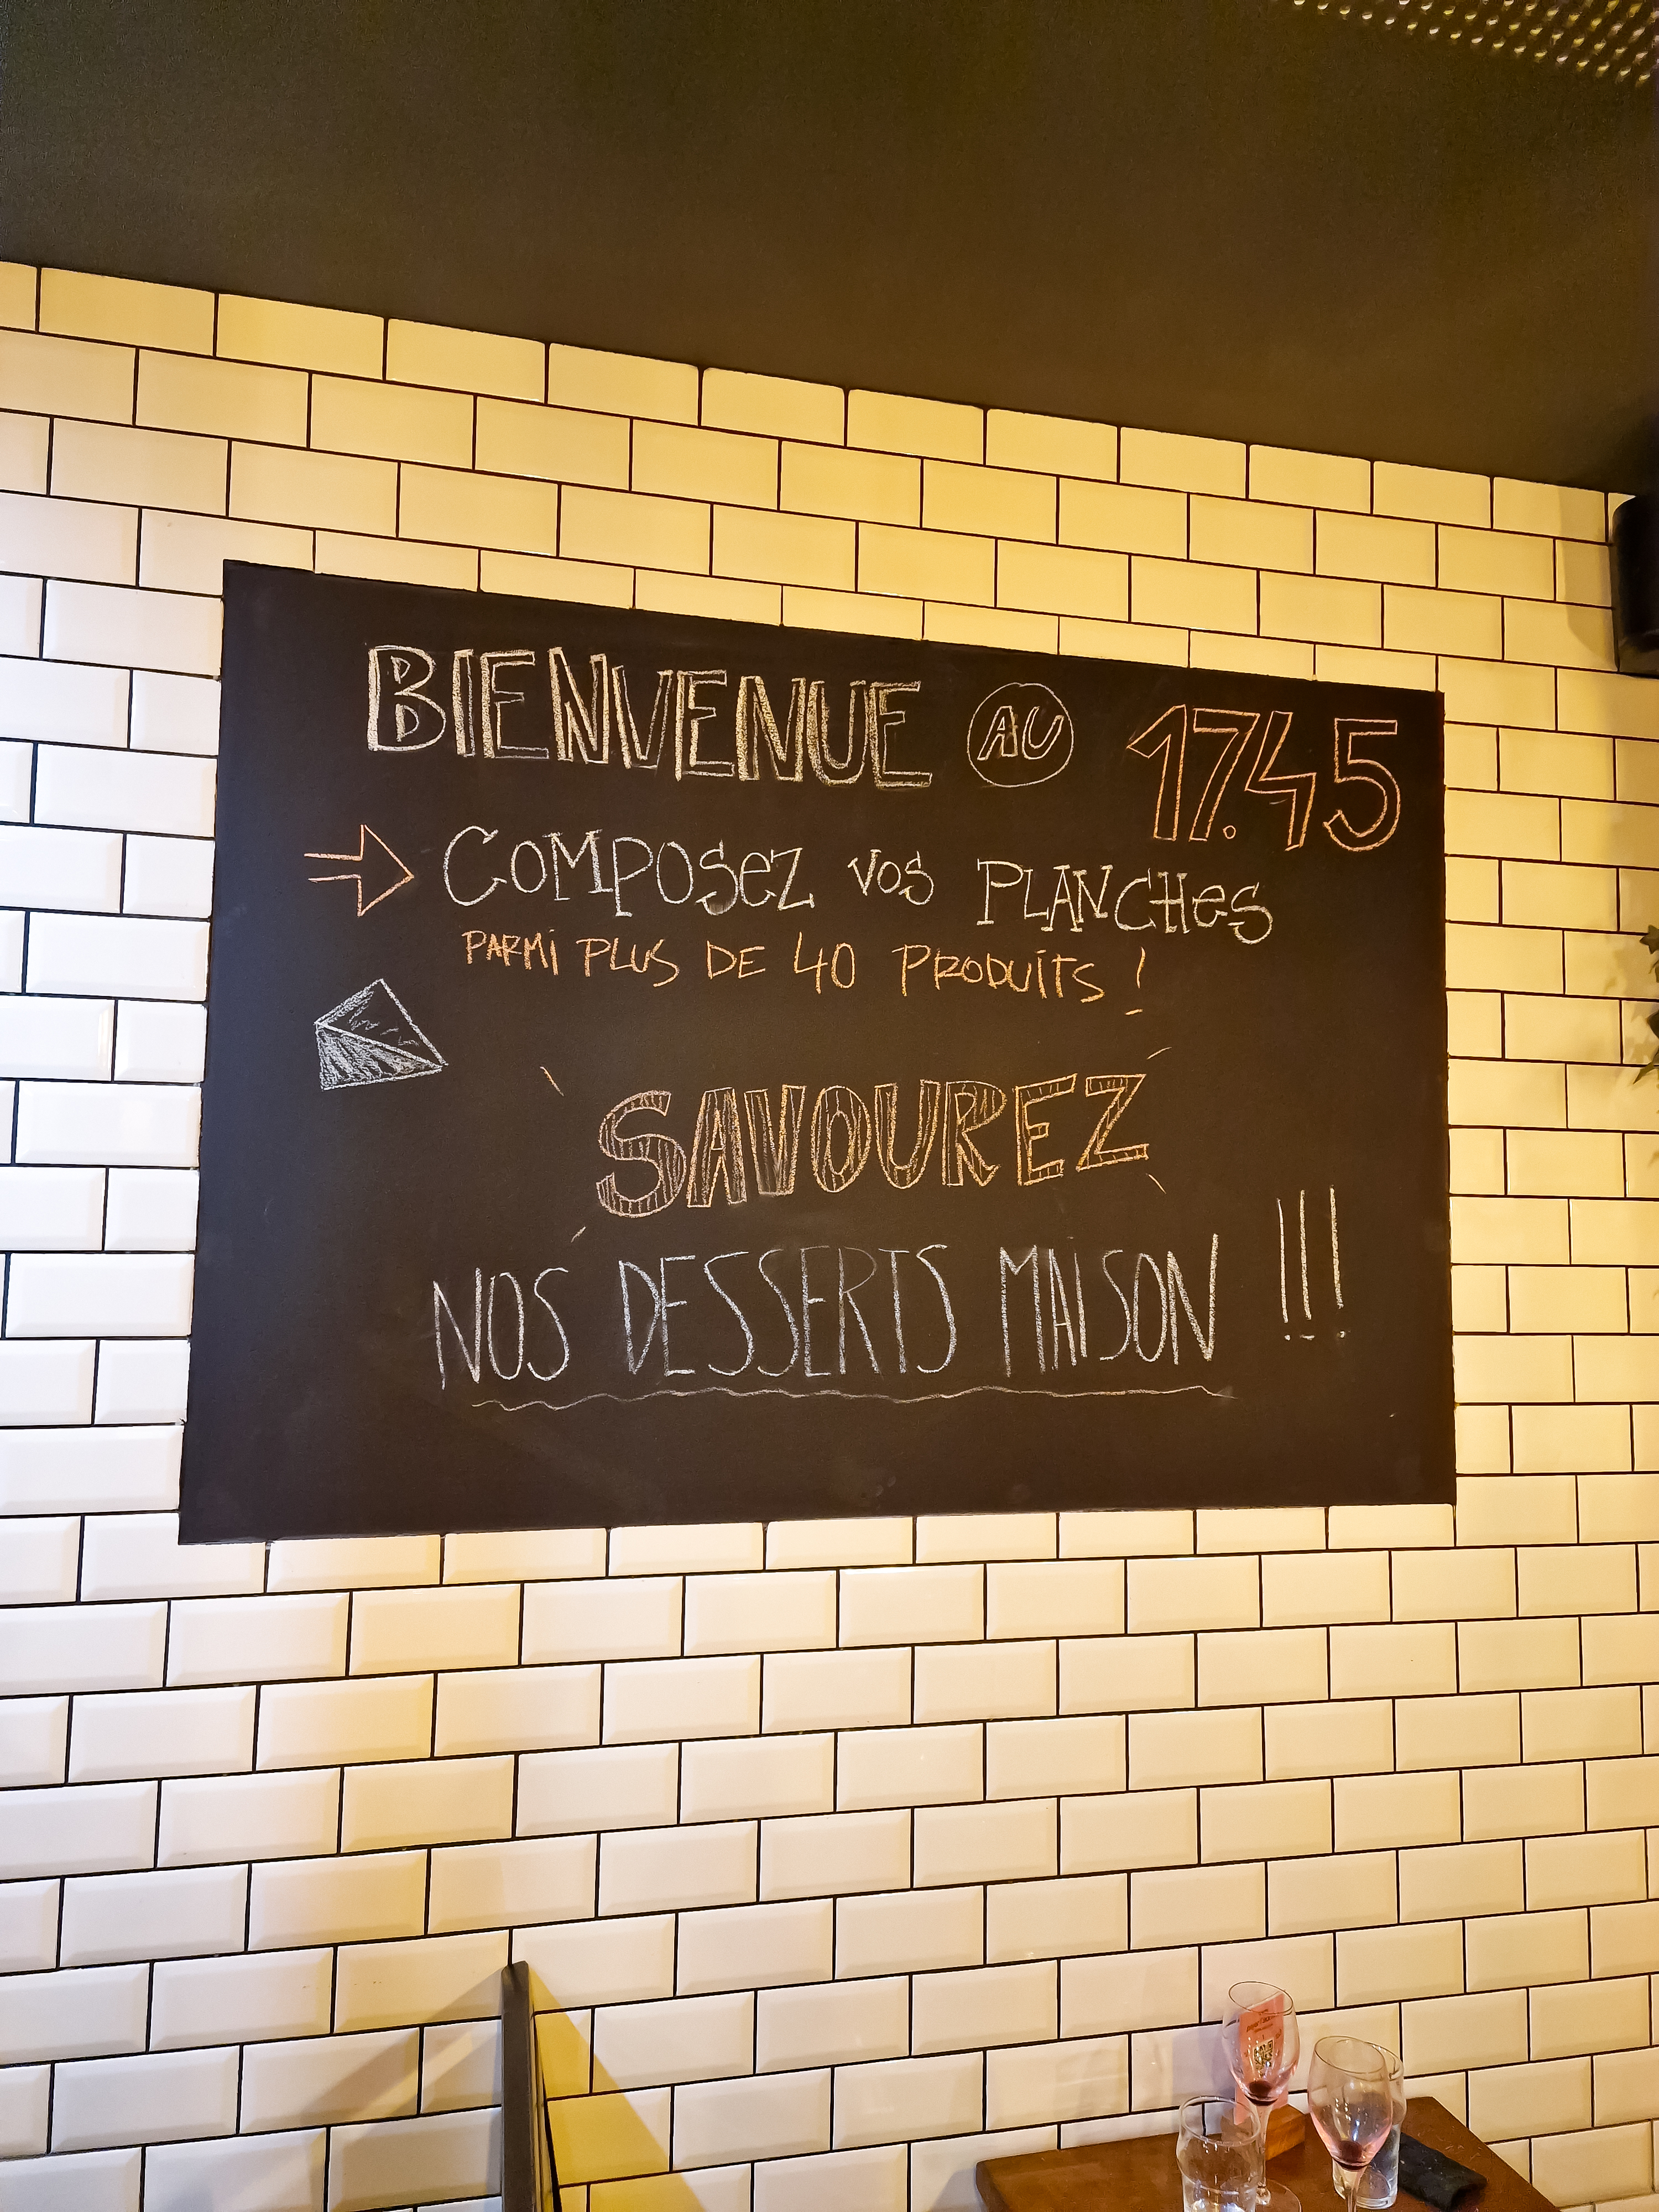 BIENVENUE AU 17.45
COMPOSEZ VOS PLANCHES
PARMI PLUS DE 40 PRODUITS !
SAVOUREZ
NOS DESSERTS MAISON !!!